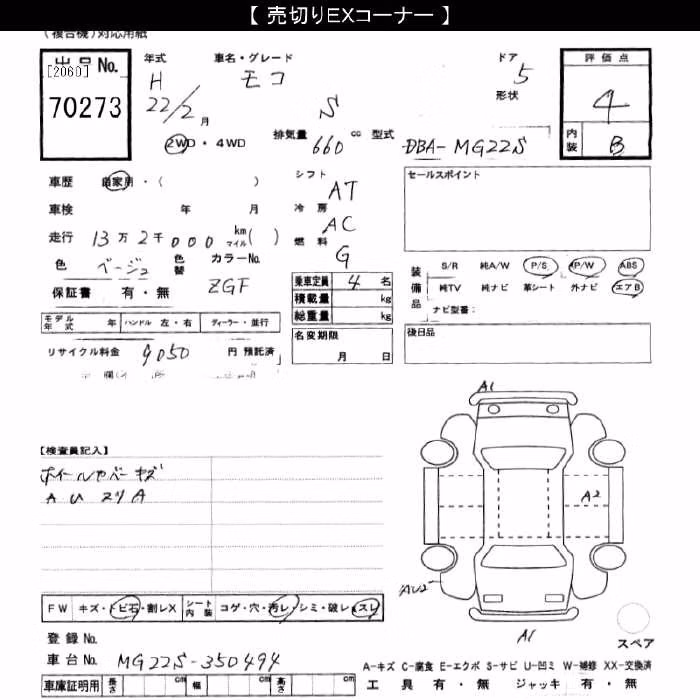 【 売切りEXコーナー 】
(複合機)対応用紙
出品No.
[2060]
70273
年式 H 22/2月
車名・グレード モコ S
ドア 5
形状
評価点 4
内装 B
2WD・4WD
排気量 660 cc
型式 DBA-MG22S
車歴 自家用・( )
シフト AT
セールスポイント
車検 年 月
冷房 AC
走行 13万2千000 km マイル( )
燃料 G
色 ベージュ
色替
カラーNo. ZGF
装備品 S/R 純A/W P/S P/W ABS
純TV 純ナビ 革シート 外ナビ エアB
ナビ型番:
保証書 有・無
乗車定員 4名
積載量 kg
総重量 kg
モデル年式 年 ハンドル 左・右 ディーラー・並行
名変期限 月 日
後日品
リサイクル料金 9050 円 預託済
A1
【検査員記入】
ホイールカバーキズ
A U スリA
A2
AU2
A1
FW キズ・トビ石・割レX シート内装 コゲ・穴・汚レ・シミ・破レ・スレ
スペア
登録No.
車台No. MG22S-350494
A-キズ C-腐食 E-エクボ S-サビ U-凹ミ W-補修 XX-交換済
車庫証明用 長さ cm 幅 cm 高さ cm
工具 有・無 ジャッキ 有・無